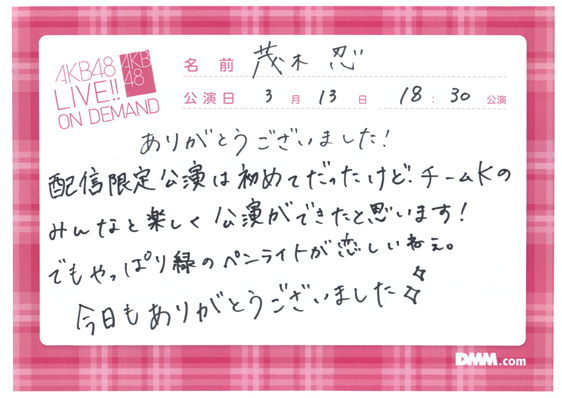 AKB48
LIVE!!
ON DEMAND
AKB
48
名前 茂木 忍
公演日 3月13日 18:30 公演
ありがとうございました!
配信限定公演は初めてだったけど、チームKの
みんなと楽しく公演ができたと思います!
でもやっぱり緑のペンライトが恋しいねぇ。
今日もありがとうございました
DMM.com